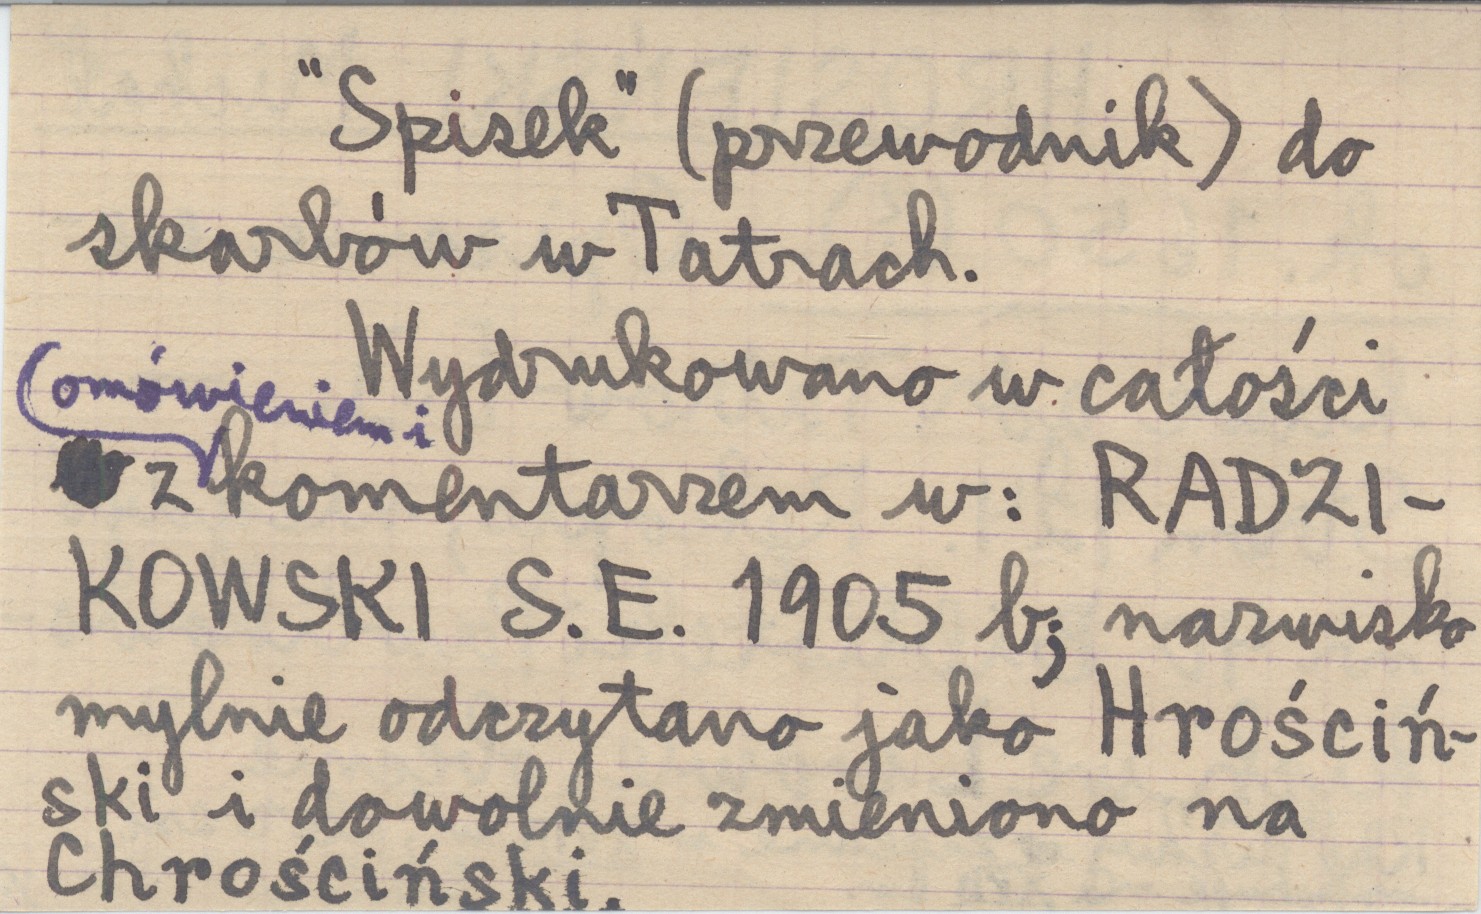 "Spisek" (przewodnik) do
skarbów w Tatrach.
Wydrukowano w całości
omówieniem i
z komentarzem w: RADZI-
KOWSKI S.E. 1905 b; nazwisko
mylnie odczytano jako Hrościń-
ski i dowolnie zmieniono na
Chrościński.